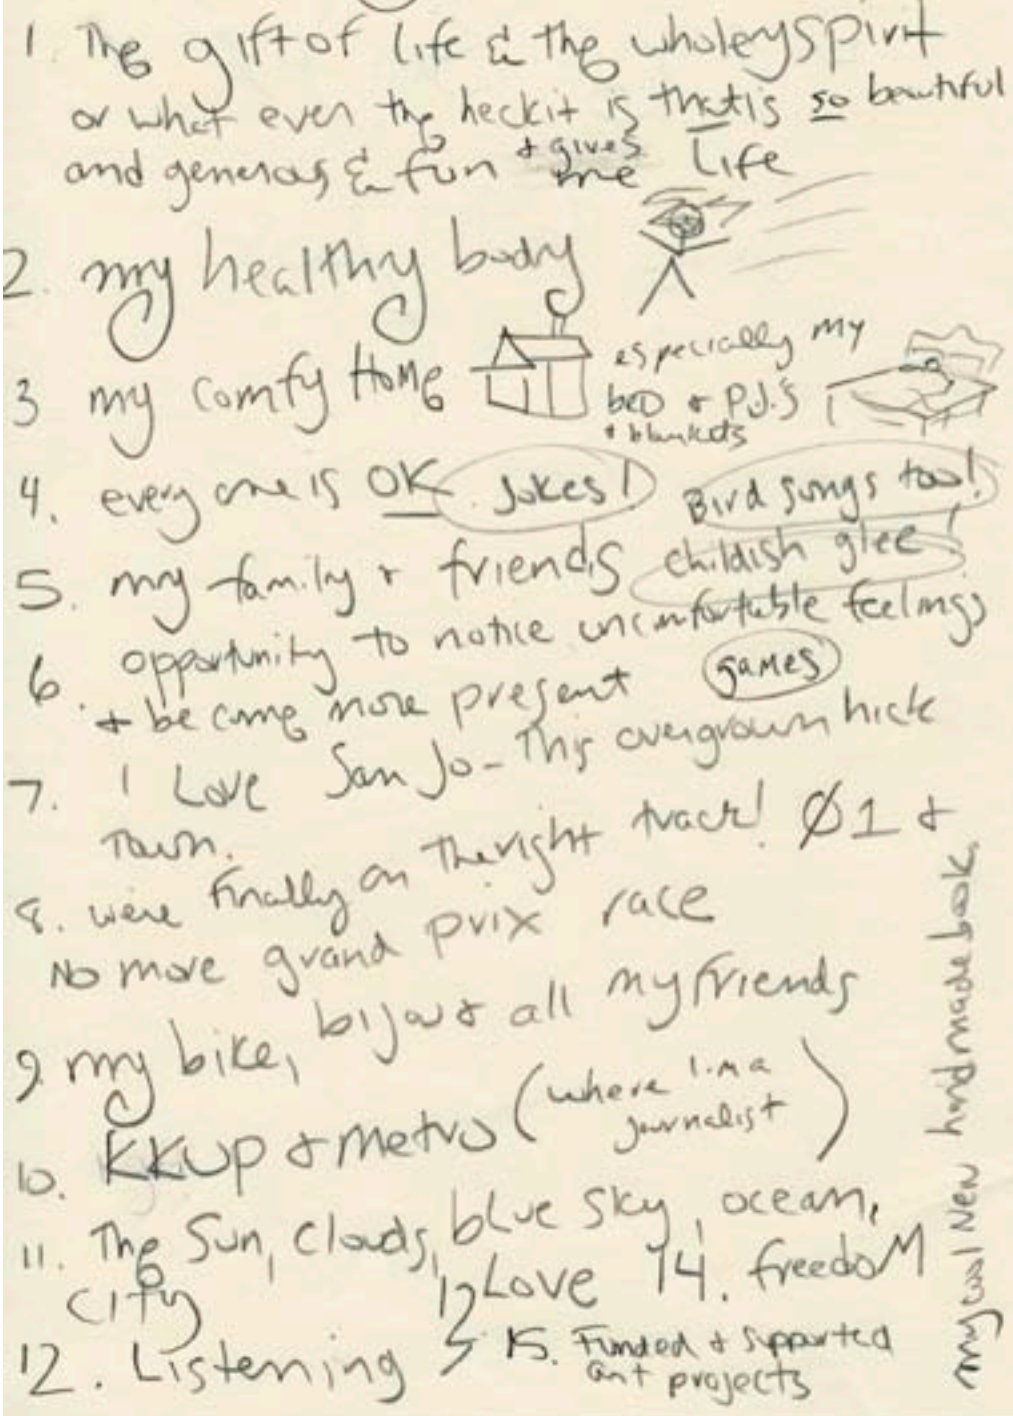 1. The gift of life & the wholey spirit
or what ever the heck it is that is so beautiful
and generous & fun + gives me Life
2. my healthy body
3 my comfy Home especially my
bed + P.J.'s
+ blankets
4. every one is OK Jokes! Bird songs too!
5. my family + friends childish glee!
6. opportunity to notice uncomfortable feelings
+ become more present games
7. I Love San Jo - This overgrown hick
Town.
8. were finally on the right track! Ø1 +
No more grand prix race
9. my bike, bijou + all my friends
10. KKUP + Metro (where I'm a
journalist)
11. The Sun, Clouds, blue sky, ocean,
City
12. Listening
13 Love 14. freedom
15. Funded + supported
art projects
my cool New handmade book.